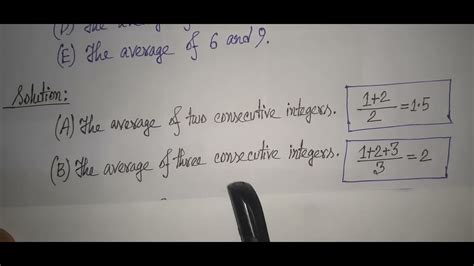 (D) The average
(E) The average of 6 and 9.
Solution:
(A) The average of two consecutive integers. 1+2/2 = 1.5
(B) The average of three consecutive integers. 1+2+3/3 = 2